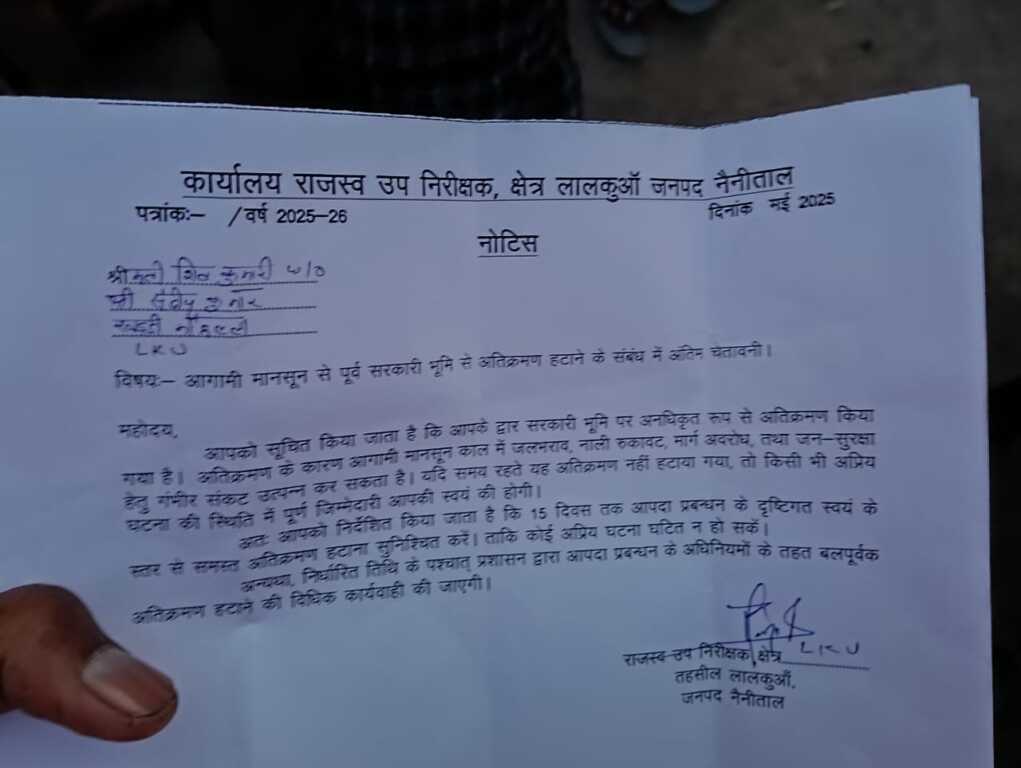 कार्यालय राजस्व उप निरीक्षक, क्षेत्र लालकुऑ जनपद नैनीताल
पत्रांकः– /वर्ष 2025–26
दिनांक मई 2025
नोटिस
श्रीमती शिव कुमारी w/o
श्री
LKU
विषयः– आगामी मानसून से पूर्व सरकारी भूमि से अतिक्रमण हटाने के संबंध में अंतिम चेतावनी।
महोदय,
आपको सूचित किया जाता है कि आपके द्वार सरकारी भूमि पर अनधिकृत रूप से अतिक्रमण किया
गया है। अतिक्रमण के कारण आगामी मानसून काल में जलभराव, नाली रुकावट, मार्ग अवरोध, तथा जन–सुरक्षा
हेतु गंभीर संकट उत्पन्न कर सकता है। यदि समय रहते यह अतिक्रमण नहीं हटाया गया, तो किसी भी अप्रिय
घटना की स्थिति में पूर्ण जिम्मेदारी आपकी स्वयं की होगी।
अतः आपको निर्देशित किया जाता है कि 15 दिवस तक आपदा प्रबन्धन के दृष्टिगत स्वयं के
स्तर से समस्त अतिक्रमण हटाना सुनिश्चित करें। ताकि कोई अप्रिय घटना घटित न हो सकें।
अन्यथा, निर्धारित तिथि के पश्चात् प्रशासन द्वारा आपदा प्रबन्धन के अधिनियमों के तहत बलपूर्वक
अतिक्रमण हटाने की विधिक कार्यवाही की जाएगी।
राजस्व उप निरीक्षक क्षेत्र LKU
तहसील लालकुऑ,
जनपद नैनीताल